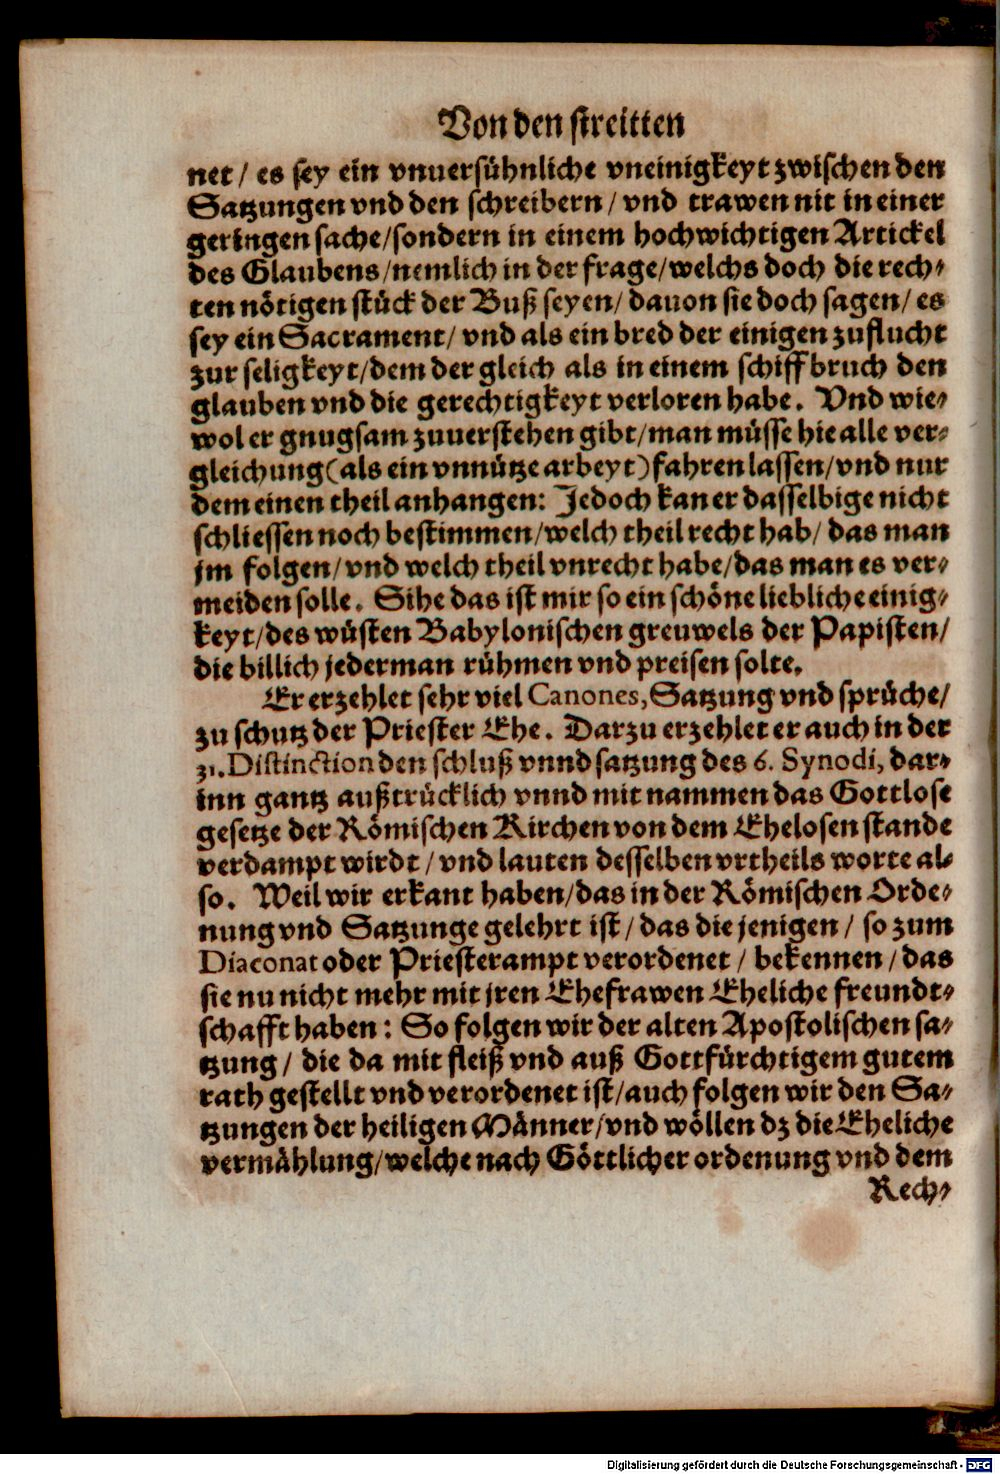 Von den streitten
net / es sey ein vnuersühnliche vneinigkeyt zwischen den
Satzungen vnd den schreibern / vnd trawen nit in einer
geringen sache/sondern in einem hochwichtigen Artickel
des Glaubens/nemlich in der frage/welchs doch die rech⸗
ten nötigen stück der Buß seyen/ dauon sie doch sagen/ es
sey ein Sacrament/ vnd als ein bred der einigen zuflucht
zur seligkeyt/dem der gleich als in einem schiffbruch den
glauben vnd die gerechtigkeyt verloren habe. Vnd wie⸗
wol er gnugsam zuuerstehen gibt/man müsse hie alle ver⸗
gleichung(als ein vnnütze arbeyt)fahren lassen/vnd nur
dem einen theil anhangen: Jedoch kan er dasselbige nicht
schliessen noch bestimmen/welch theil recht hab/ das man
jm folgen/vnd welch theil vnrecht habe/das man es ver⸗
meiden solle. Sihe das ist mir so ein schöne liebliche einig⸗
keyt/des wüsten Babylonischen greuwels der Papisten/
die billich jederman rühmen vnd preisen solte.
Er erzehlet sehr viel Canones, Satzung vnd sprüche/
zu schutz der Priester Ehe. Darzu erzehlet er auch in der
31. Distinction den schluß vnnd satzung des 6. Synodi, dar⸗
inn gantz außtrücklich vnnd mit nammen das Gottlose
gesetze der Römischen Kirchen von dem Ehelosen stande
verdampt wirdt / vnd lauten desselben vrtheils worte al⸗
so. Weil wir erkant haben/das in der Römischen Orde⸗
nung vnd Satzunge gelehrt ist / das die jenigen / so zum
Diaconat oder Priesterampt verordenet / bekennen / das
sie nu nicht mehr mit jren Ehefrawen Eheliche freundt⸗
schafft haben: So folgen wir der alten Apostolischen sa⸗
tzung / die da mit fleiß vnd auß Gottfürchtigem gutem
rath gestellt vnd verordenet ist/auch folgen wir den Sa⸗
tzungen der heiligen Männer/vnd wöllen dz die Eheliche
vermählung/welche nach Göttlicher ordenung vnd dem
Rech⸗
Digitalisierung gefördert durch die Deutsche Forschungsgemeinschaft - DFG